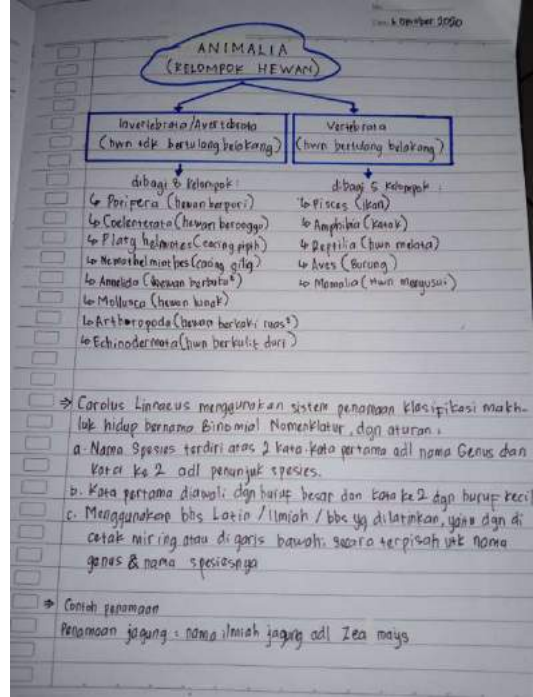 6 Oktober 2020
ANIMALIA
(KELOMPOK HEWAN)
Invertebrata/Avertebrata
(hwn tdk bertulang belakang)
Vertebrata
(hwn bertulang belakang)
dibagi 8 kelompok:
↳ Porifera (hewan berpori)
↳ Coelenterata (hewan berongga)
↳ Platy helmintes (cacing pipih)
↳ Nemathelminthes (cacing gilig)
↳ Annelida (hewan berbuku²)
↳ Mollusca (hewan lunak)
↳ Arthoropoda (hewan berkaki ruas²)
↳ Echinodermata (hwn berkulit duri)
dibagi 5 kelompok:
↳ Pisces (ikan)
↳ Amphibia (katak)
↳ Reptilia (hwn melata)
↳ Aves (Burung)
↳ Mamalia (hwn menyusui)
⇒ Carolus Linnaeus menggunakan sistem penamaan klasifikasi makh-
luk hidup bernama Binomial Nomenklatur, dgn aturan:
a. Nama Spesies terdiri atas 2 kata. kata pertama adl nama Genus dan
kata ke 2 adl penunjuk spesies.
b. Kata pertama diawali dgn huruf besar dan kata ke 2 dgn huruf kecil
c. Menggunakan bhs Latin / Ilmiah / bhs yg dilatinkan, yaitu dgn di
cetak miring atau di garis bawahi secara terpisah utk nama
genus & nama spesiesnya
⇒ Contoh penamaan
Penamaan jagung : nama ilmiah jagung adl Zea mays